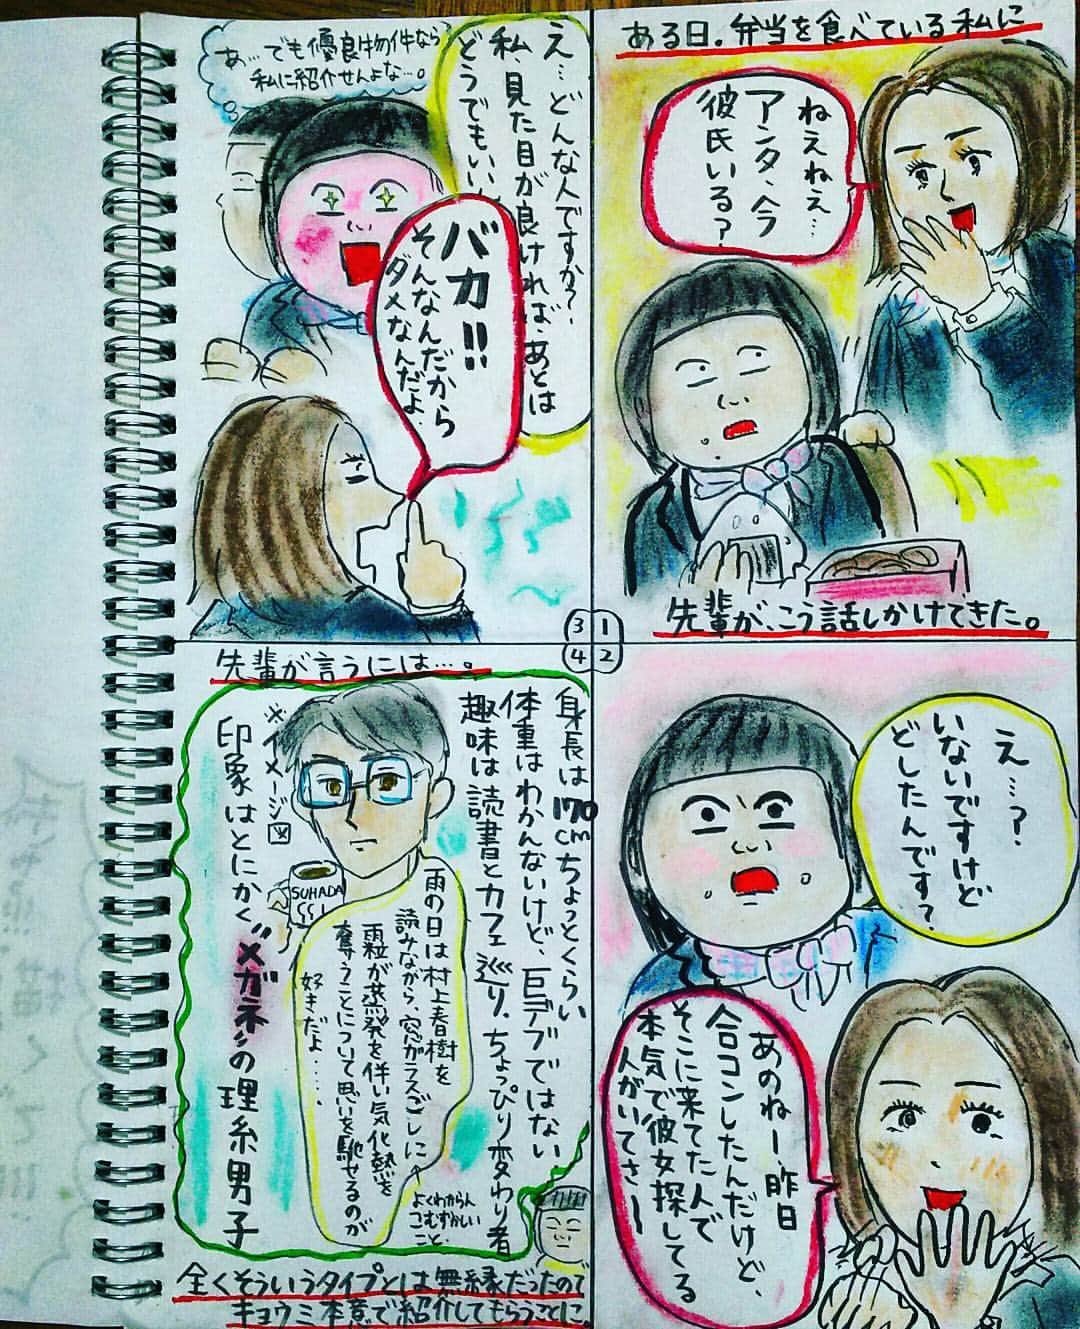 ある日。弁当を食べている私に
ねえねえ…
アンタ、今
彼氏いる？
先輩が、こう話しかけてきた。
1
2
3
4
え…？
いないですけど
どしたんです？
あのねー昨日
合コンしたんだけど、
そこに来てた人で
本気で彼女探してる
人がいてさー
え…どんな人ですか？
私、見た目が良ければ、あとは
どうでもいい
あ…でも優良物件なら
私に紹介せんよな…。
バカ!!
そんなんだから
ダメなんだよ
先輩が言うには…。
身長は170cmちょっとくらい
体重はわかんないけど、巨デブではない
趣味は読書とカフェ巡り。ちょっぴり変わり者
※イメージ図
SUHADA
雨の日は村上春樹を
読みながら、窓ガラスごしに
雨粒が蒸発を伴い気化熱を
奪うことについて思いを馳せるのが
好きだよ….
よくわからん
こむずかしい
こと。
印象はとにかく"メガネ"の理系男子
全くそういうタイプとは無縁だったので
キョウミ本意で紹介してもらうことに。